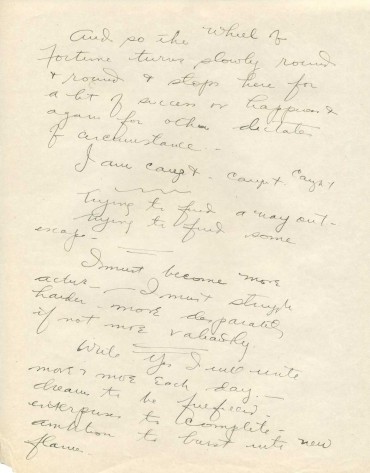 And so the Wheel of
Fortune turns slowly round
& round & stops here for
a bit of success or happiness &
again for other dictates
of circumstance -
I am caught - caught caught
Trying to find a way out -
trying to find some
escape -
I must become more
active - I must struggle
harder - more desparately
if not more valiantly
Write Yes I will write
more & more each day. -
dreams to be fulfilled -
enterprises to complete - new
ambition to burst into
flame